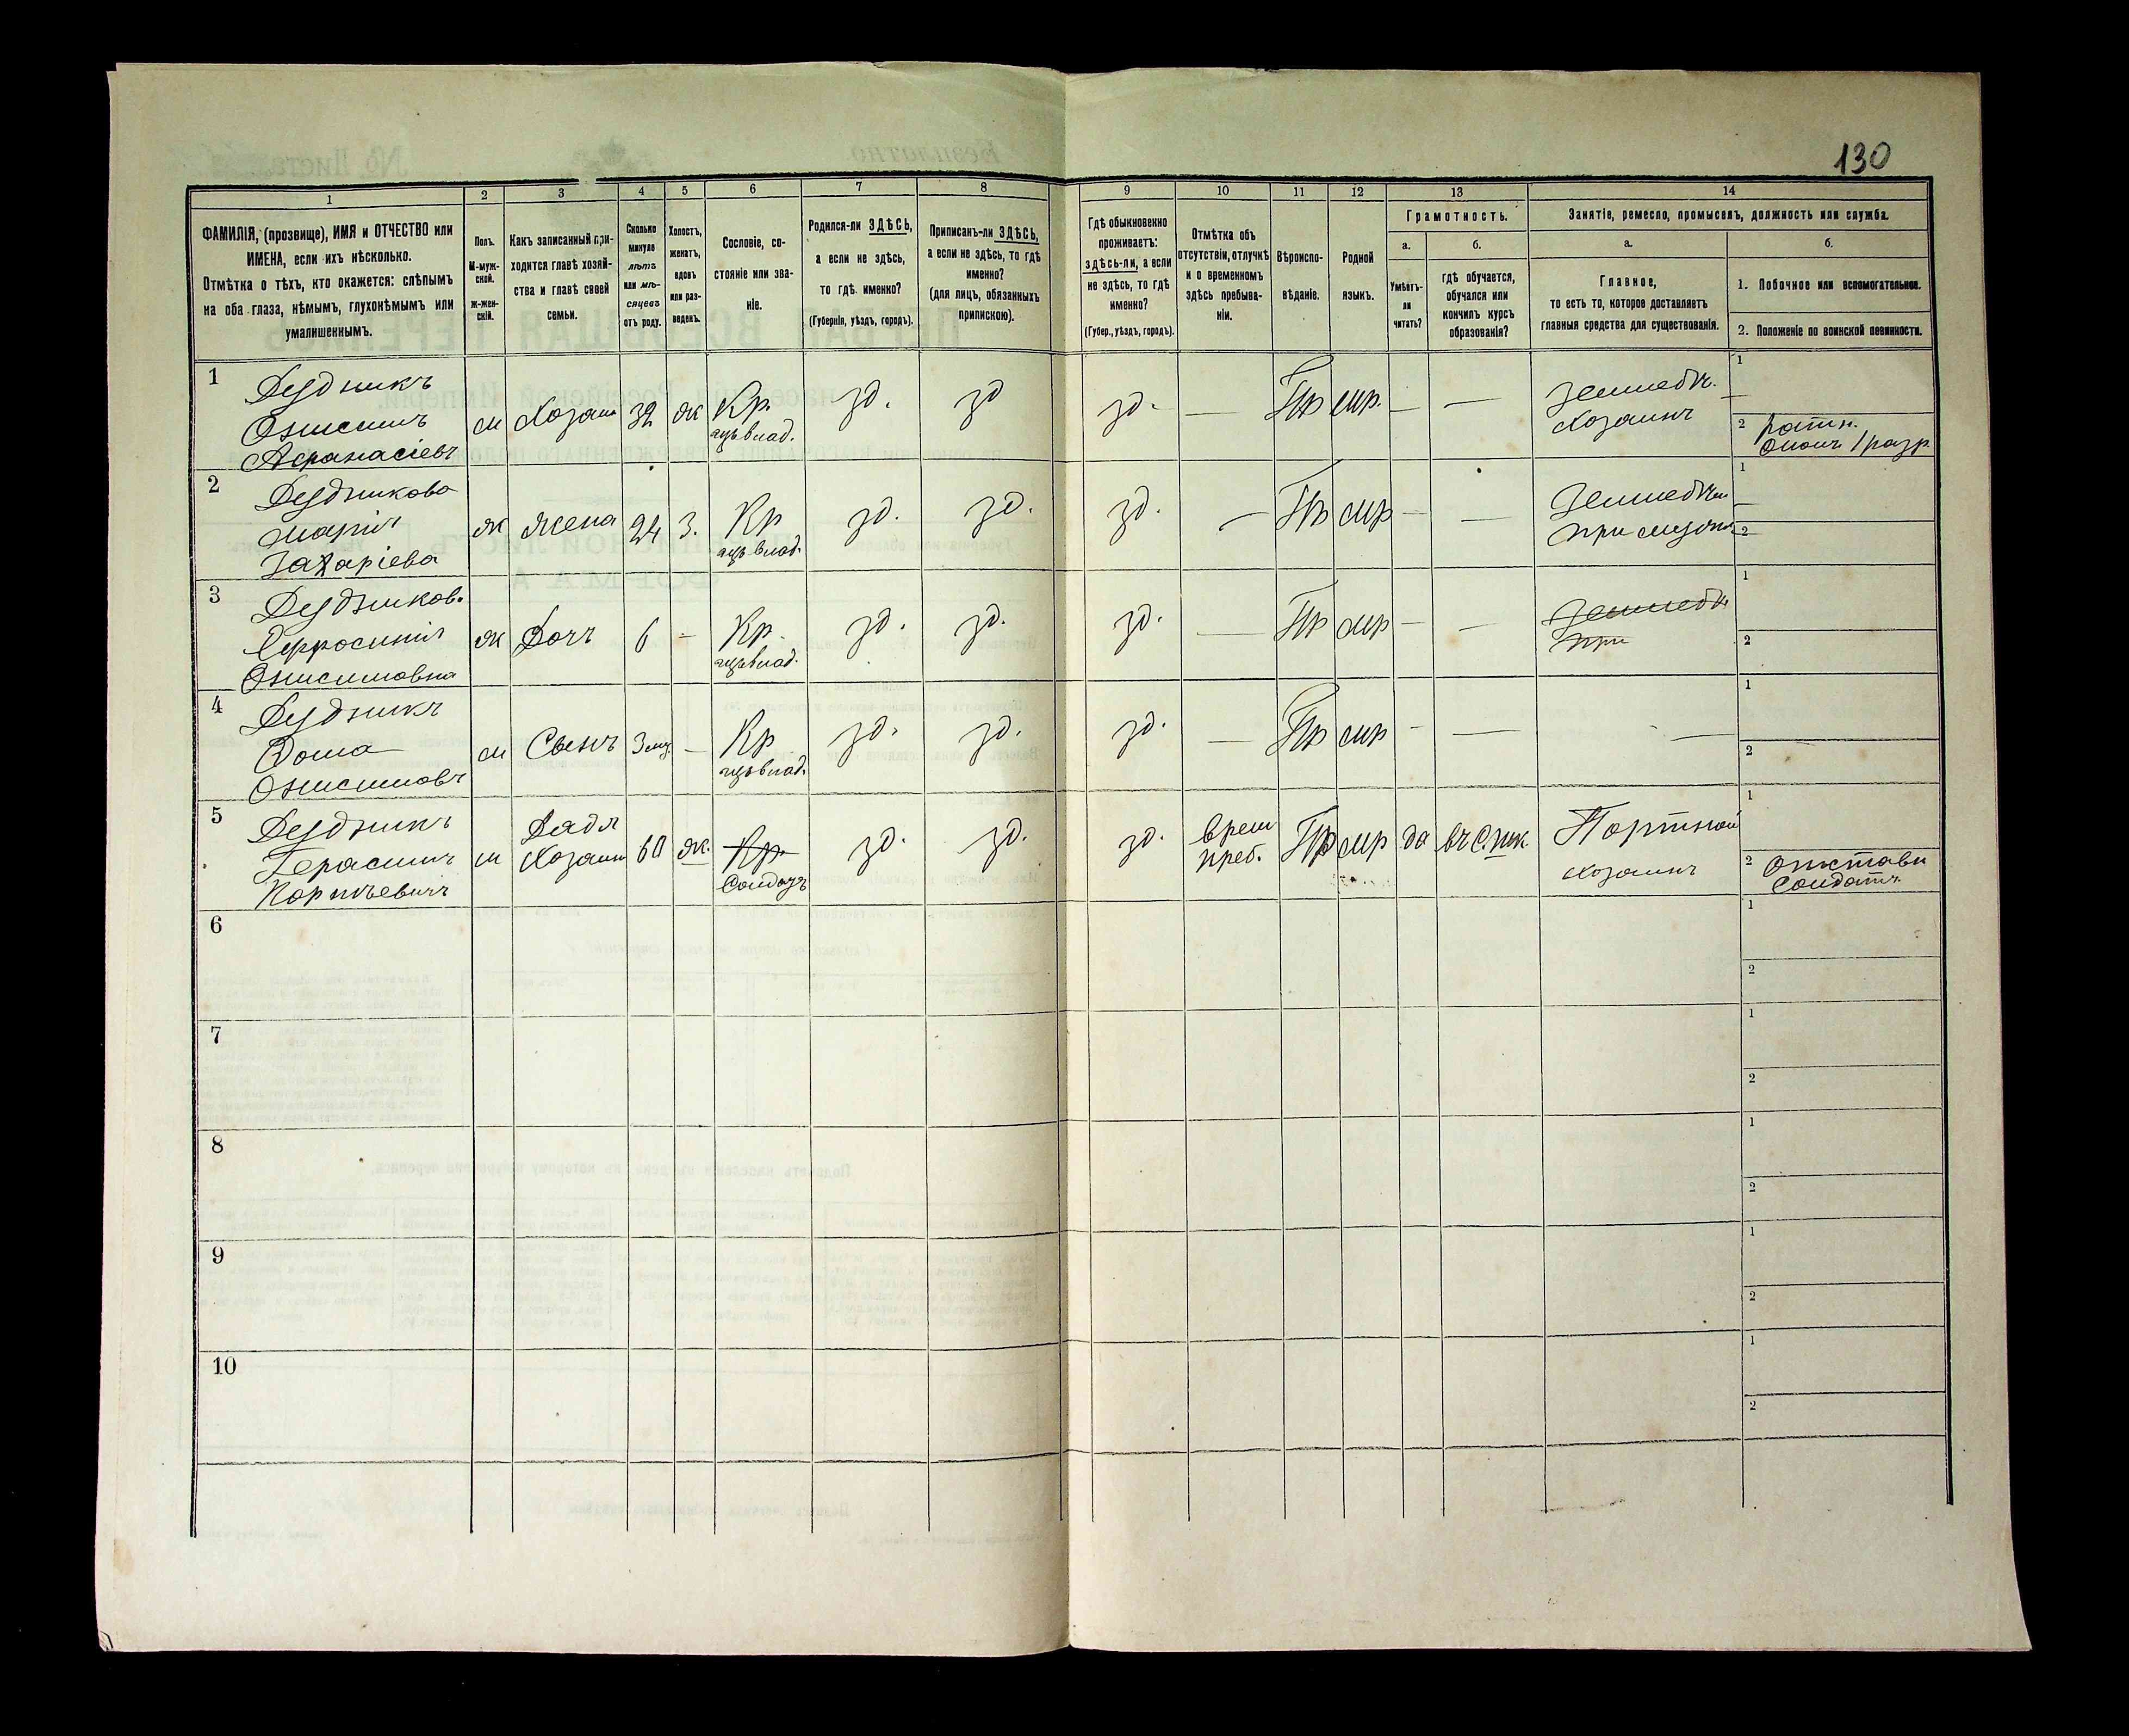 130
1
2
3
4
5
6
7
8
9
10
11
12
13
14
ФАМИЛІЯ, (прозвище), ИМЯ и ОТЧЕСТВО или
ИМЕНА, если ихъ нѣсколько.
Отмѣтка о тѣхъ, кто окажется: слѣпымъ
на оба глаза, нѣмымъ, глухонѣмымъ или
умалишеннымъ.
Полъ.
М-муж-
ской.
Ж-жен-
скій.
Какъ записанный при-
ходится главѣ хозяй-
ства и главѣ своей
семьи.
Сколько
минуло
лѣтъ
или мѣ-
сяцевъ
отъ роду.
Холостъ,
женатъ,
вдовъ
или раз-
веденъ.
Сословіе, со-
стояніе или зва-
ніе.
Родился-ли ЗДѢСЬ,
а если не здѣсь,
то гдѣ именно?
(Губернія, уѣздъ, городъ).
Приписанъ-ли ЗДѢСЬ,
а если не здѣсь, то гдѣ
именно?
(для лицъ, обязанныхъ
припискою).
Гдѣ обыкновенно
проживаетъ:
здѣсь-ли, а если
не здѣсь, то гдѣ
именно?
(Губер., уѣздъ, городъ).
Отмѣтка объ
отсутствіи, отлучкѣ
и о временномъ
здѣсь пребыва-
ніи.
Вѣроиспо-
вѣданіе.
Родной
языкъ.
Грамотность.
а.
Умѣетъ-
ли
читать?
б.
гдѣ обучается,
обучался или
кончилъ курсъ
образованія?
Занятіе, ремесло, промыселъ, должность или служба.
а.
Главное,
то есть то, которое доставляетъ
главныя средства для существованія.
б.
1. Побочное или вспомогательное.
2. Положеніе по воинской повинности.
1
Дудникъ
Онисимъ
Афанасіевъ
м
Хозяин
32
жк
Кр.
зд.
зд
зд.
—
Пр
мр.
—
—
Хозаинъ
1
—
2 ратн.
1 разр
2
Дудникова
Марія
Захаріева
ж
жена
24
З.
Кр
зд.
зд.
зд.
—
Пр
мр
—
—
При
1
—
2
3
Дудников.
Ефросинія
Онисимовна
ж
Дочь
6
—
Кр.
зд.
зд.
зд.
—
Пр
мр
—
—
при
1
2
4
Дудникъ
Фома
Онисимовъ
м
Сынъ
3 мц.
—
Кр
зд.
зд.
зд.
—
Пр
мр
—
—
—
1
2
5
Дудникъ
Герасимъ
Корнѣевичъ
м
Дядя
Хозаин
60
жк.
Кр.
Солдатъ
зд.
зд.
зд.
врем
преб.
Пр
мр
да
въ
Портной
хозаинъ
1
2 Отстави
Солдатъ.
6
1
2
7
1
2
8
1
2
9
1
2
10
1
2